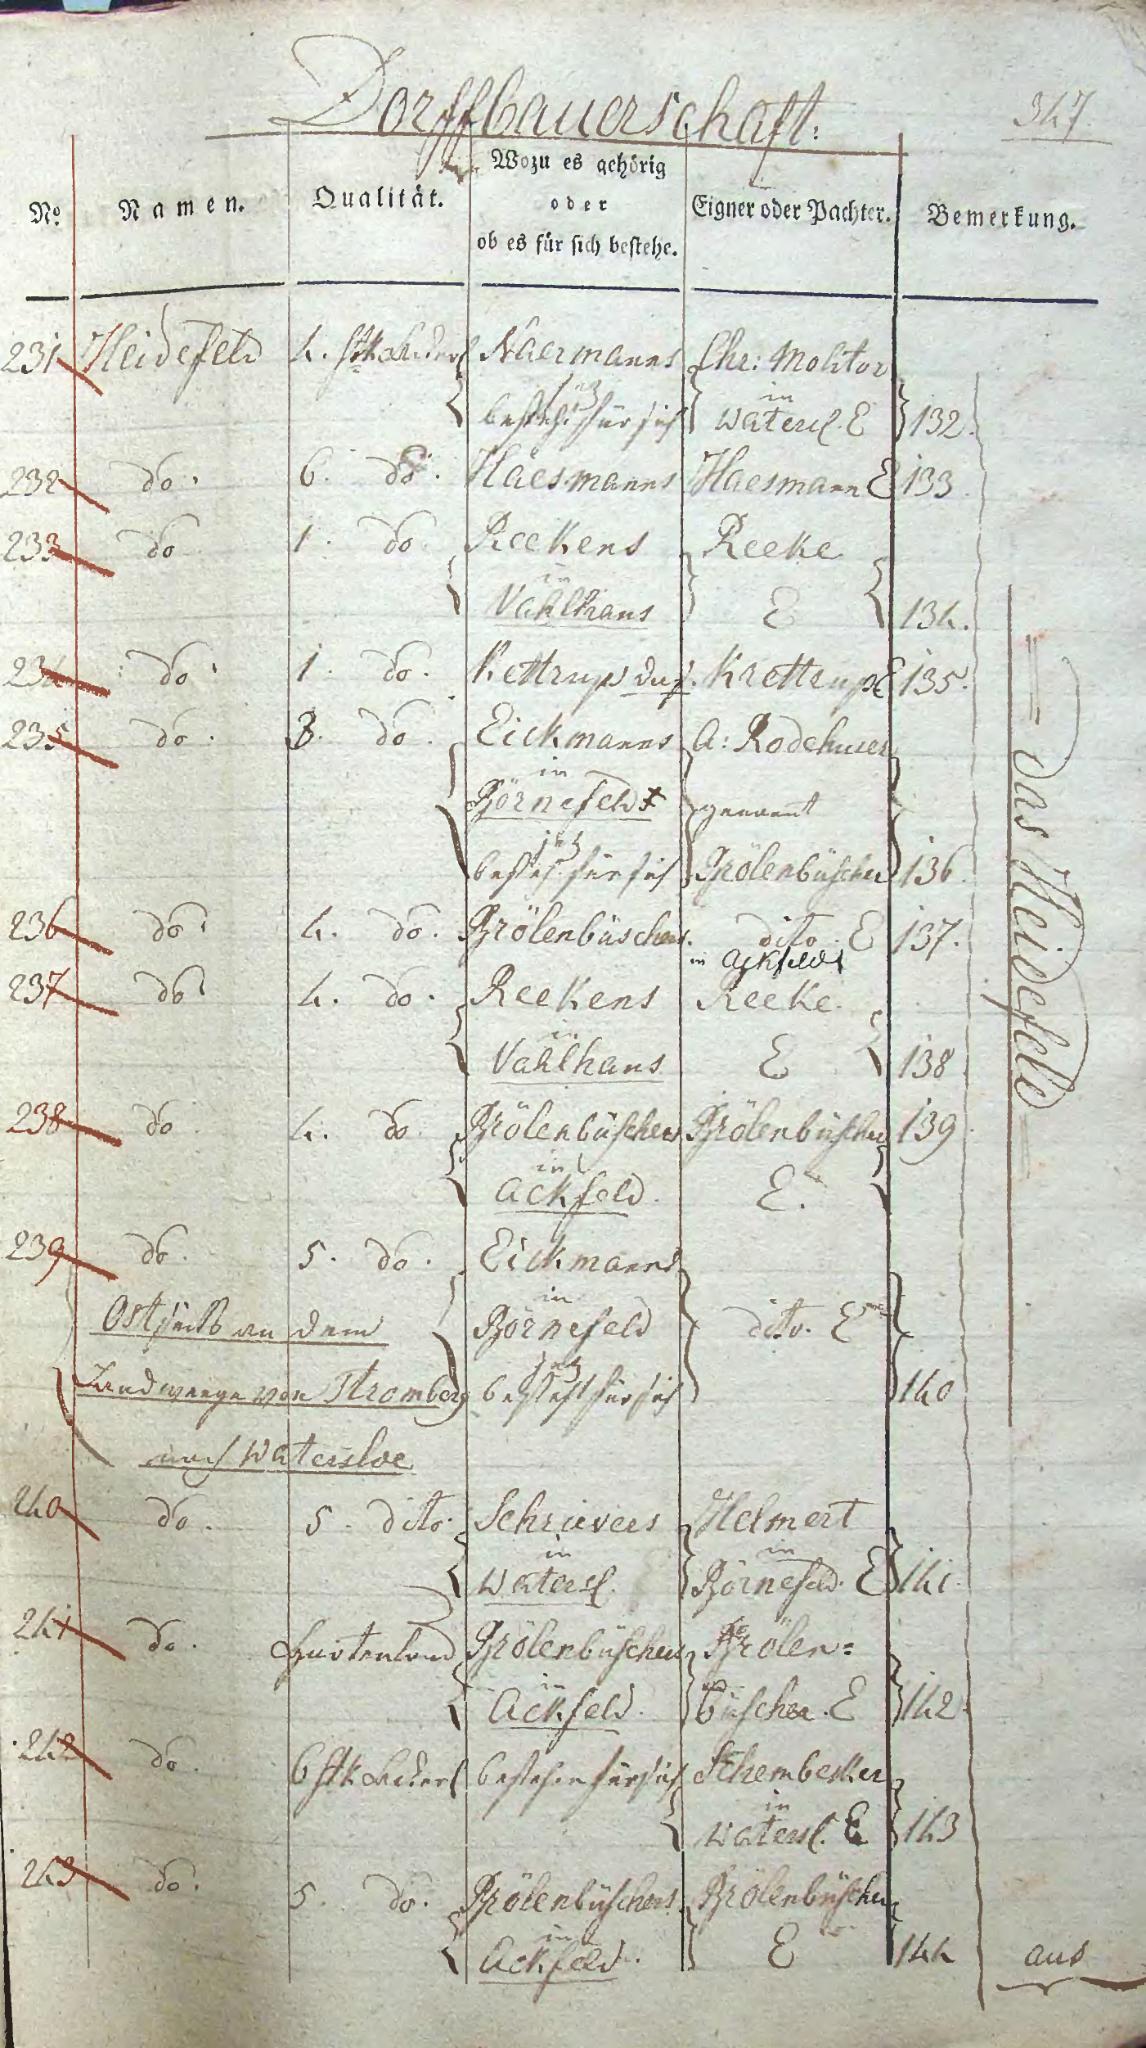 Dorffbauerschaft:
347.
No. Namen. Qualität. Wozu es gehörig oder ob es für sich bestehe. Eigner oder Pachter. Bemerkung.
231 Heidefeld 4. Stk Ackerl Naermanns Chr: Molitor
jez in
besteht für sich Watersl. E 132.
232 do. 6. do. Haesmanns Haesmann E 133.
233 do 1. do. Reekens Reeke
in
Vahlhaus E 134.
234 do. 1. do. Kettrups das. Krettrup E 135.
235 do. 3. do. Eickmanns A: Rodehuser
in
Börnefeld genannt
jez
besteh. für sich Brölenbüscher 136.
236 do. 4. do. Brölenbüschers. dito. E 137.
in Ackfeld
237 do. 4. do. Reekens Reeke.
in
Vahlhaus E 138
238 do. 4. do. Brölenbüschers Brölenbüscher 139.
in
Ackfeld. E.
239 do. 5. do. Eickmanns
in
Ostseits an dem Börnefeld dito. E
jez
Landweege von Stromberg besteht für sich 140
nach Watersloe
240 do. 5. dito. Schrievers Helmert
in in
Watersl. Börnefeld. E 141.
241 do. Gartenland Brölenbüschers Brölen=
in
Ackfeld. büscher. E 142.
242 do. 6 Stk Ackerl bestehen für sich Schembecker
in
Watersl. E 143
243 do. 5. do. Brölenbüschers. Brölenbüscher
in
Ackfeld. E 144
das Heidefeld
aus